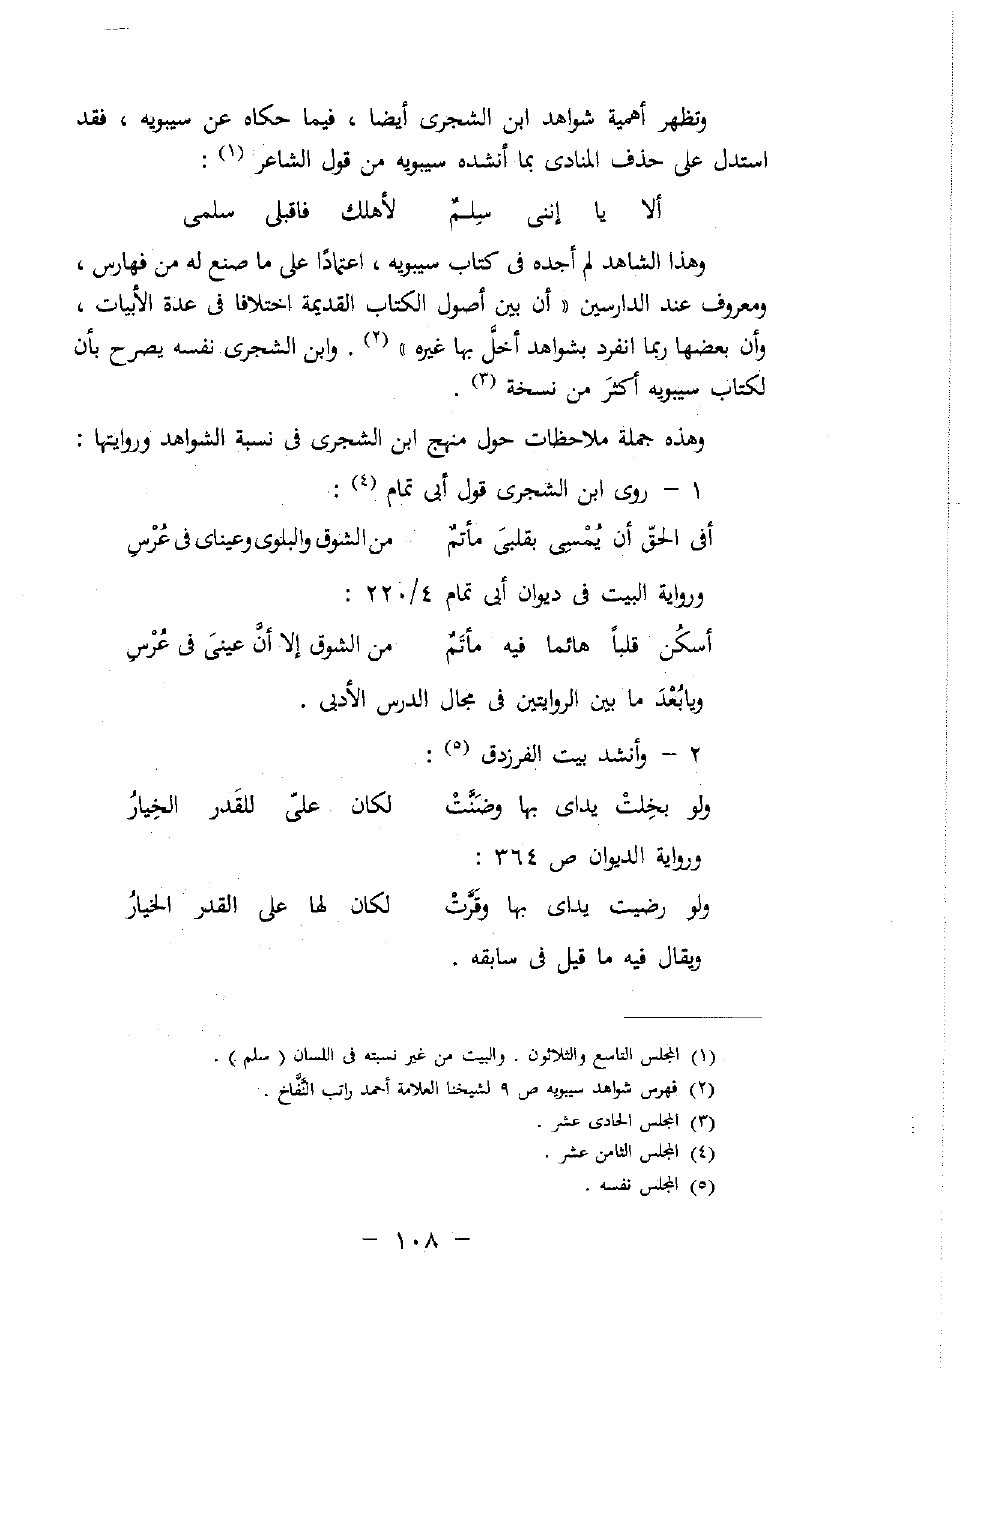 وتظهر أهمية شواهد ابن الشجرى أيضا ، فيما حكاه عن سيبويه ، فقد
استدل على حذف المنادى بما أنشده سيبويه من قول الشاعر (١) :
ألا يا إننى سِلمٌ لأهلك فاقبلى سلمى
وهذا الشاهد لم أجده فى كتاب سيبويه ، اعتمادًا على ما صنع له من فهارس ،
ومعروف عند الدارسين « أن بين أصول الكتاب القديمة اختلافا فى عدة الأبيات ،
وأن بعضها ربما انفرد بشواهد أخلَّ بها غيره » (٢) . وابن الشجرى نفسه يصرح بأن
لكتاب سيبويه أكثرَ من نسخة (٣) .
وهذه جملة ملاحظات حول منهج ابن الشجرى فى نسبة الشواهد وروايتها :
١ – روى ابن الشجرى قول أبى تمام (٤) :
أفى الحقّ أن يُمْسِى بقلبىَ مأتمٌ من الشوق والبلوى وعيناى فى عُرْسِ
ورواية البيت فى ديوان أبى تمام ٢٢٠/٤ :
أسكُن قلباً هائما فيه مأتَمٌ من الشوق إلا أنَّ عينىَ فى عُرْسِ
ويابُعْدَ ما بين الروايتين فى مجال الدرس الأدبى .
٢ – وأنشد بيت الفرزدق (٥) :
ولو بخِلتْ يداى بها وضَنَّتْ لكان علىّ للقَدر الخِيارُ
ورواية الديوان ص ٣٦٤ :
ولو رضيت يداى بها وقَرَّتْ لكان لها على القدر الخيارُ
ويقال فيه ما قيل فى سابقه .
(١) المجلس التاسع والثلاثون . والبيت من غير نسبته فى اللسان ( سلم ) .
(٢) فهرس شواهد سيبويه ص ٩ لشيخنا العلامة أحمد راتب النَّفَّاخ .
(٣) المجلس الحادى عشر .
(٤) المجلس الثامن عشر .
(٥) المجلس نفسه .
– ١٠٨ –